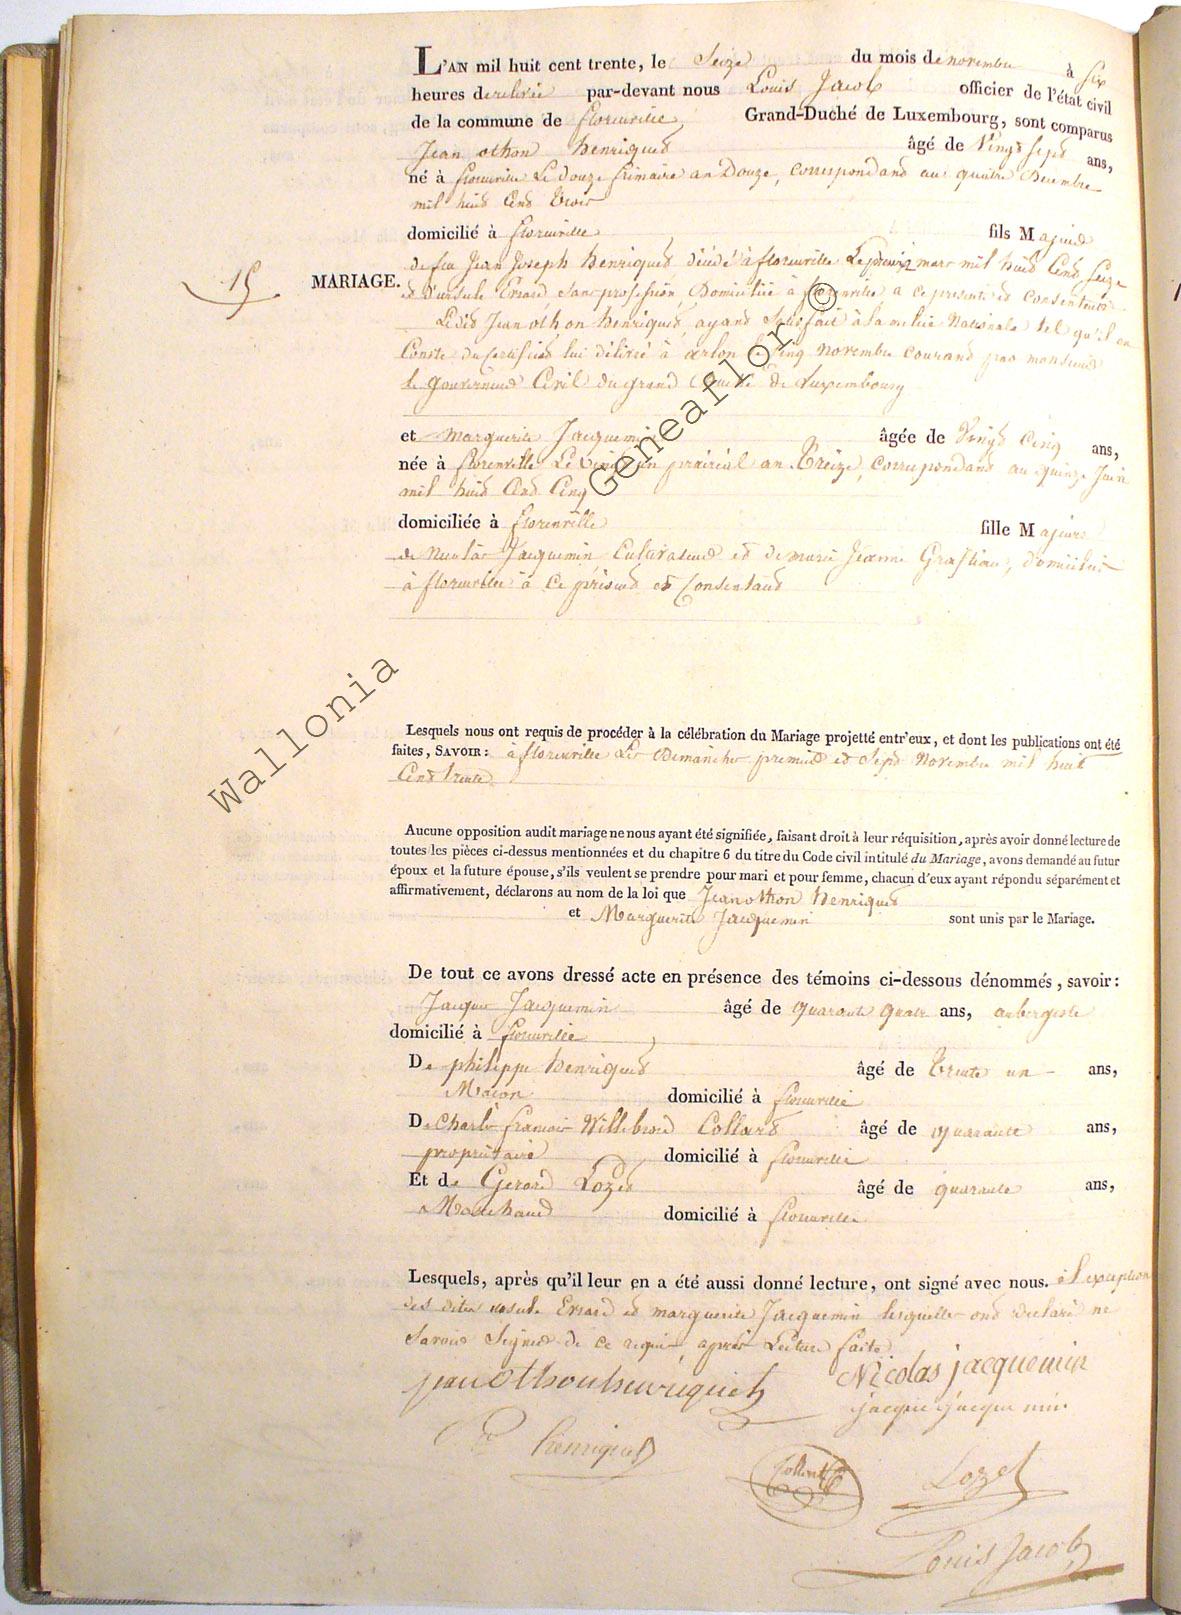 L'AN mil huit cent trente, le Seize du mois de novembre à six
heures de relevée par-devant nous Louis Jacob officier de l'état civil
de la commune de florenville, Grand-Duché de Luxembourg, sont comparus
Jean othon henriquet âgé de Vingt Sept ans,
né à florenville Le douze frimaire an Douze, correspondant au quatre Decembre
mil huit Cent trois
domicilié à florenville, fils Majeur
de feu Jean Joseph henriquet, décédé à florenville Le premier mars mil huit Cent Seize
et d'ursule Erard Sans profession, Domiciliée à florenville, a ce presente et consentente
15
MARIAGE.
Ledit Jean othon henriquet, ayant Satisfait à la milice Nationale tel qu'il en
Conste du Certificat lui délivré à arlon le cinq novembre courant par monsieur
le gouverneur Civil du grand Duché de Luxembourg
et Marguerite Jacquemin âgée de Vingt Cinq ans,
née à florenville Le vingt un prairial an Treize, correspondant au quinze Juin
mil huit Cent Cinq
domiciliée à florenville fille Majeure
de Nicolas Jacquemin Cultivateur et de marie Jeanne domiciliés
à florenville à ce présent et Consentant
Lesquels nous ont requis de procéder à la célébration du Mariage projetté entr'eux, et dont les publications ont été
faites, SAVOIR: à florenville Les Dimanches premier et Sept Novembre mil huit
Cent trente
Aucune opposition audit mariage ne nous ayant été signifiée, faisant droit à leur réquisition, après avoir donné lecture de
toutes les pièces ci-dessus mentionnées et du chapitre 6 du titre du Code civil intitulé du Mariage, avons demandé au futur
époux et la future épouse, s'ils veulent se prendre pour mari et pour femme, chacun d'eux ayant répondu séparément et
affirmativement, déclarons au nom de la loi que Jean othon henriquet
et Marguerite Jacquemin sont unis par le Mariage.
De tout ce avons dressé acte en présence des témoins ci-dessous dénommés, savoir:
Jacque Jacquemin âgé de quarante quatre ans, aubergiste
domicilié à florenville,
De philippe henriquet âgé de trente un ans,
Macon domicilié à florenville
De Charles françois Willebrord Collard âgé de quarante ans,
propriétaire domicilié à florenville
Et de Gerard Lozet âgé de quarante ans,
Marchand domicilié à florenville
Lesquels, après qu'il leur en a été aussi donné lecture, ont signé avec nous. à l'exception
des dites ursule Erard et marguerite Jacquemin lesquelles ont déclaré ne
Savoir Signer de ce requis, après Lecture faite
jean othon henriquet Nicolas jacquemin
jacque jacque min
P henriquet
Collard Lozet
Louis Jacob
Wallonia Geneaflor ©